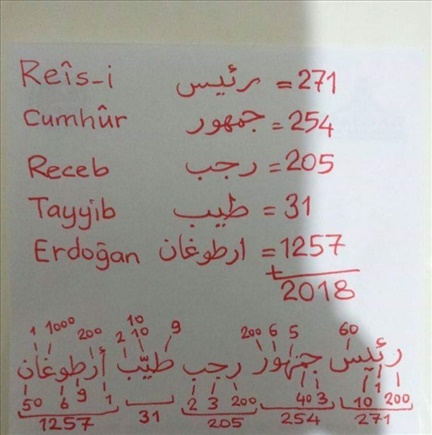 Reîs-i رئيس = 271
Cumhûr جمهور = 254
Receb رجب = 205
Tayyib طيب = 31
Erdoğan ارطوغان = 1257
+
2018
1 1000 200 2 10 10 9 200 6 5 60
رئيس جمهور رجب طيّب أرطوغان
50 6 9 1 2 3 200 40 3 10 1 200
1257 31 205 254 271